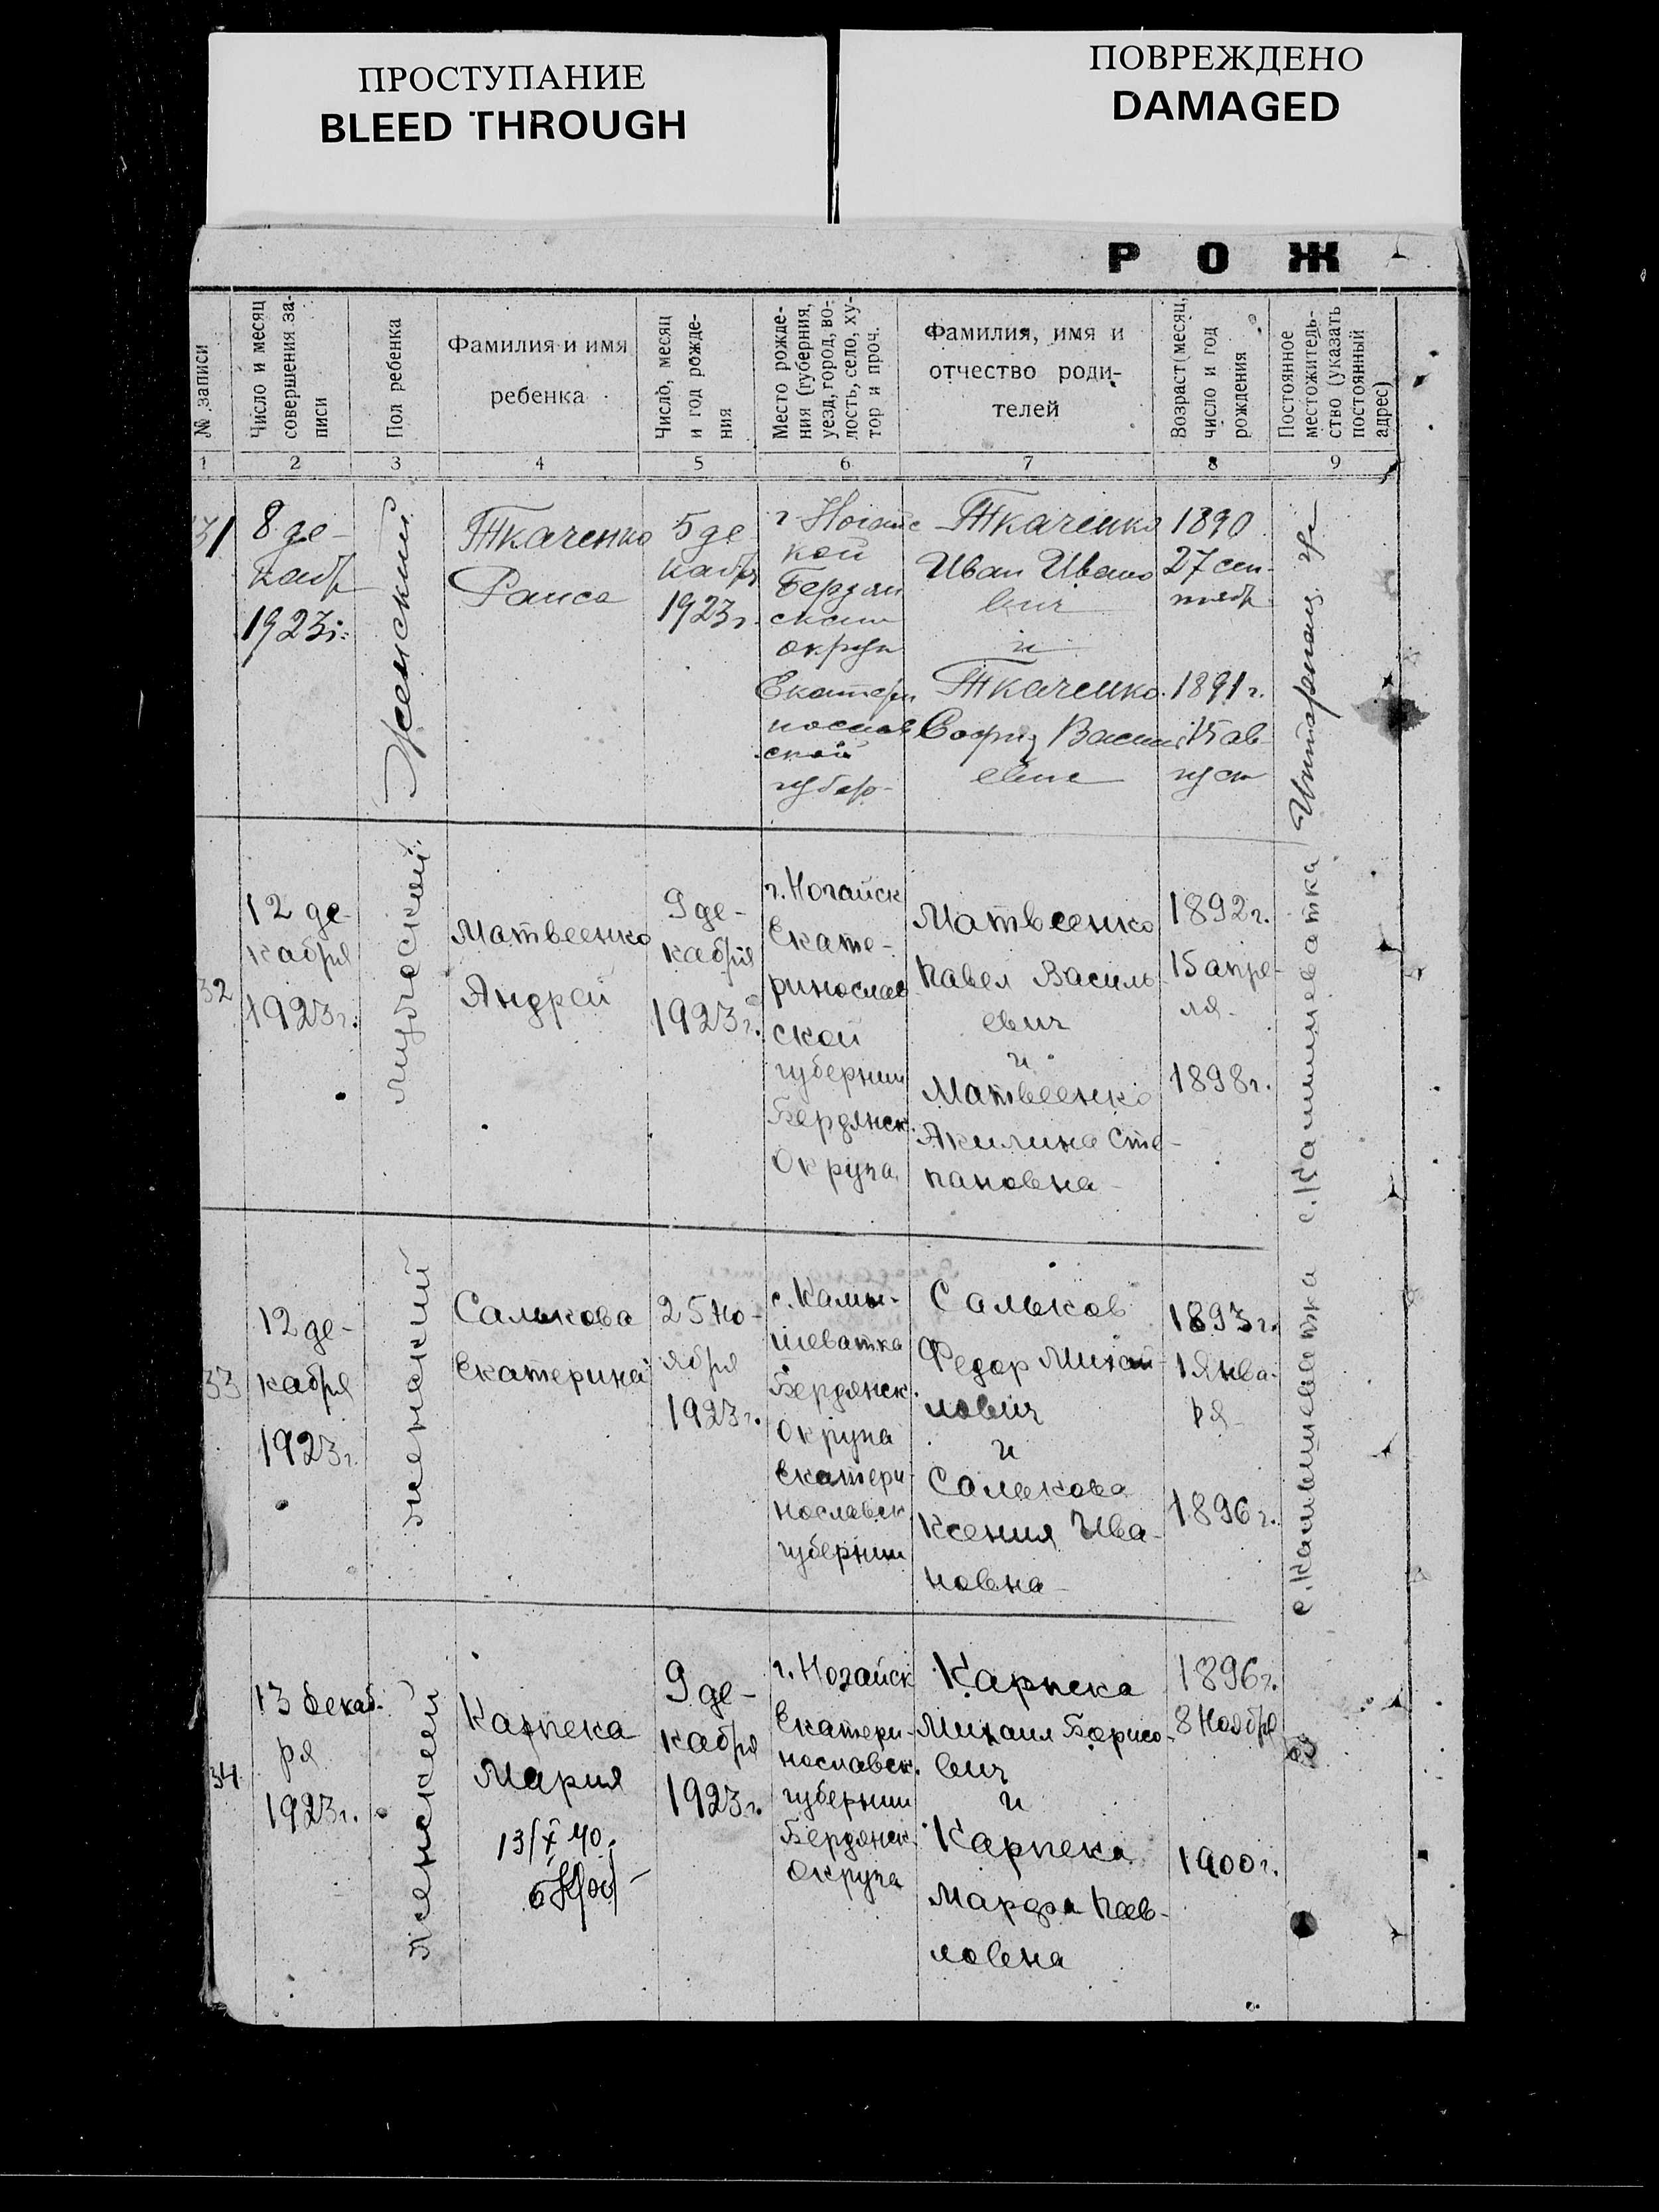 ПРОСТУПАНИЕ
BLEED THROUGH
ПОВРЕЖДЕНО
DAMAGED
Р О Ж
№ записи
Число и месяц
совершения за-
писи
Пол ребенка
Фамилия и имя
ребенка
Число, месяц
и год рожде-
ния
Место рожде-
ния (губерния,
уезд, город, во-
лость, село, ху-
тор и проч.
Фамилия, имя и
отчество роди-
телей
Возраст (месяц,
число и год
рождения
Постоянное
местожитель-
ство (указать
постоянный
адрес)
1 2 3 4 5 6 7 8 9
31
8 де-
кабр
1923г.
Женский
Ткаченко
Раиса
5 де-
кабр
1923г.
г Ногайс
кой
Бердян
ском
округи
Екатери
нослав
ской
губер-
Ткаченко
Иван Ивано
вич
и
Ткаченко
София Васил
евна
1890
27 сен-
тябр
1891г.
15 ав-
густ
32
12 де-
кабря
1923г.
мужской
Матвеенко
Андрей
9 де-
кабря
1923г.
г. Ногайск
Екате-
ринослав
ской
губернии
Бердянск.
Округа
Матвеенко
Павел Василь-
евич
и
Матвеенко
Акилина Сте-
пановна
1892г.
15 апре-
ля
1898г.
с. Камышеватка
33
12 де-
кабря
1923г.
женский
Салькова
Екатерина
25 но-
ября
1923г.
с. Камы-
шеватка
Бердянск.
Округа
Екатери-
нославск
губернии
Сальков
Федор Михай-
лович
и
Салькова
Ксения Ива-
новна
1893г.
1 Янва-
ря
1896г.
с. Камышеватка
34
13 декаб-
ря
1923г.
женский
Карпека
Мария
13/X 40.
9 де-
кабря
1923г.
г. Ногайск
Екатери-
нославск.
губернии
Бердянск.
Округа
Карпека
Михаил Борисо-
вич
и
Карпека
Марфа Пав-
ловна
1896г.
8 Ноября
1900г.